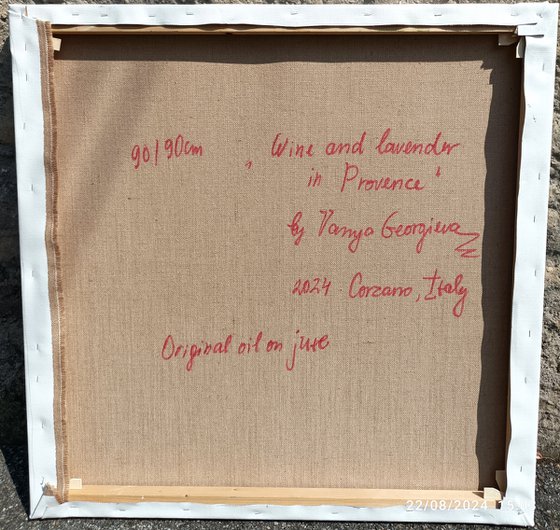 90/90cm „Wine and lavender
in Provence"
by Vanya Georgieva
2024 Corzano, Italy
Original oil on jute
22/08/2024 15: